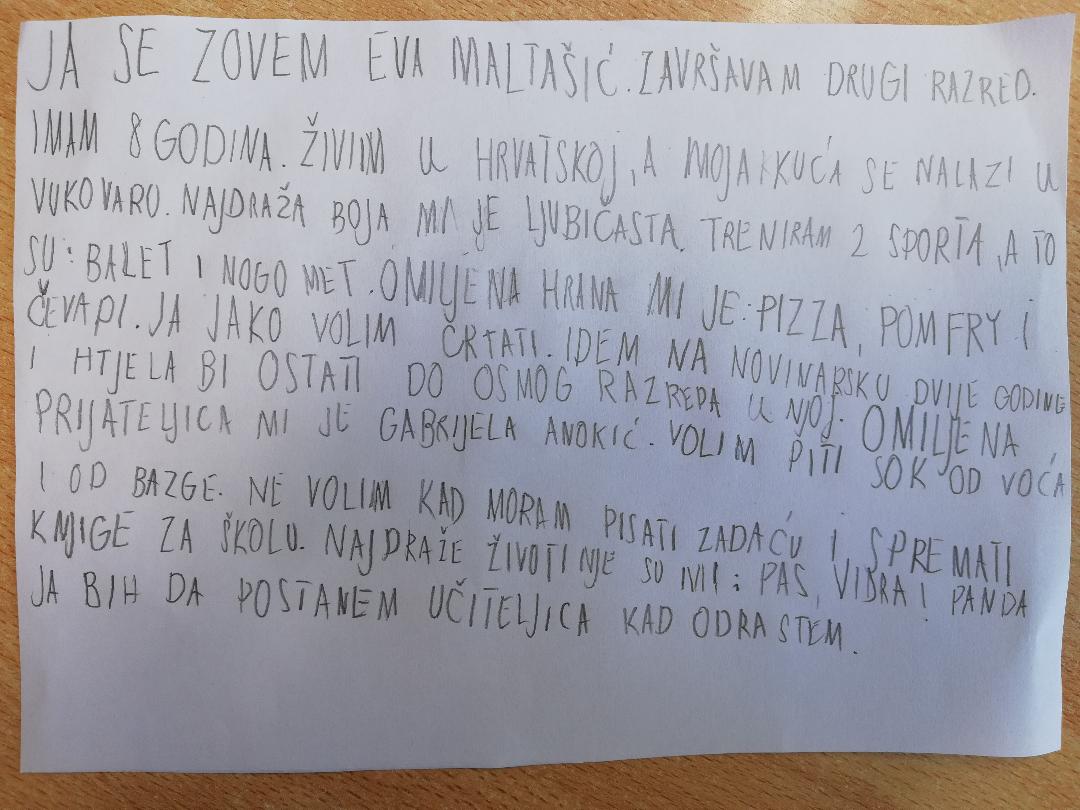 JA SE ZOVEM EVA MALTAŠIĆ. ZAVRŠAVAM DRUGI RAZRED.
IMAM 8 GODINA. ŽIVIM U HRVATSKOJ, A MOJA KUĆA SE NALAZI U
VUKOVARO. NAJDRAŽA BOJA MI JE LJUBIČASTA. TRENIRAM 2 SPORTA, A TO
SU: BALET I NOGOMET. OMILJENA HRANA MI JE: PIZZA, POMFRY I
ČEVAPI. JA JAKO VOLIM CRTATI. IDEM NA NOVINARSKU DVIJE GODINE
I HTJELA BI OSTATI DO OSMOG RAZREDA U NJOJ. OMILJENA
PRIJATELJICA MI JE GABRIJELA ANOKIĆ. VOLIM PITI SOK OD VOĆA
I OD BAZGE. NE VOLIM KAD MORAM PISATI ZADAĆU I SPREMATI
KNJIGE ZA ŠKOLU. NAJDRAŽE ŽIVOTINJE SU MI: PAS, VIDRA I PANDA
JA BIH DA POSTANEM UČITELJICA KAD ODRASTEM.